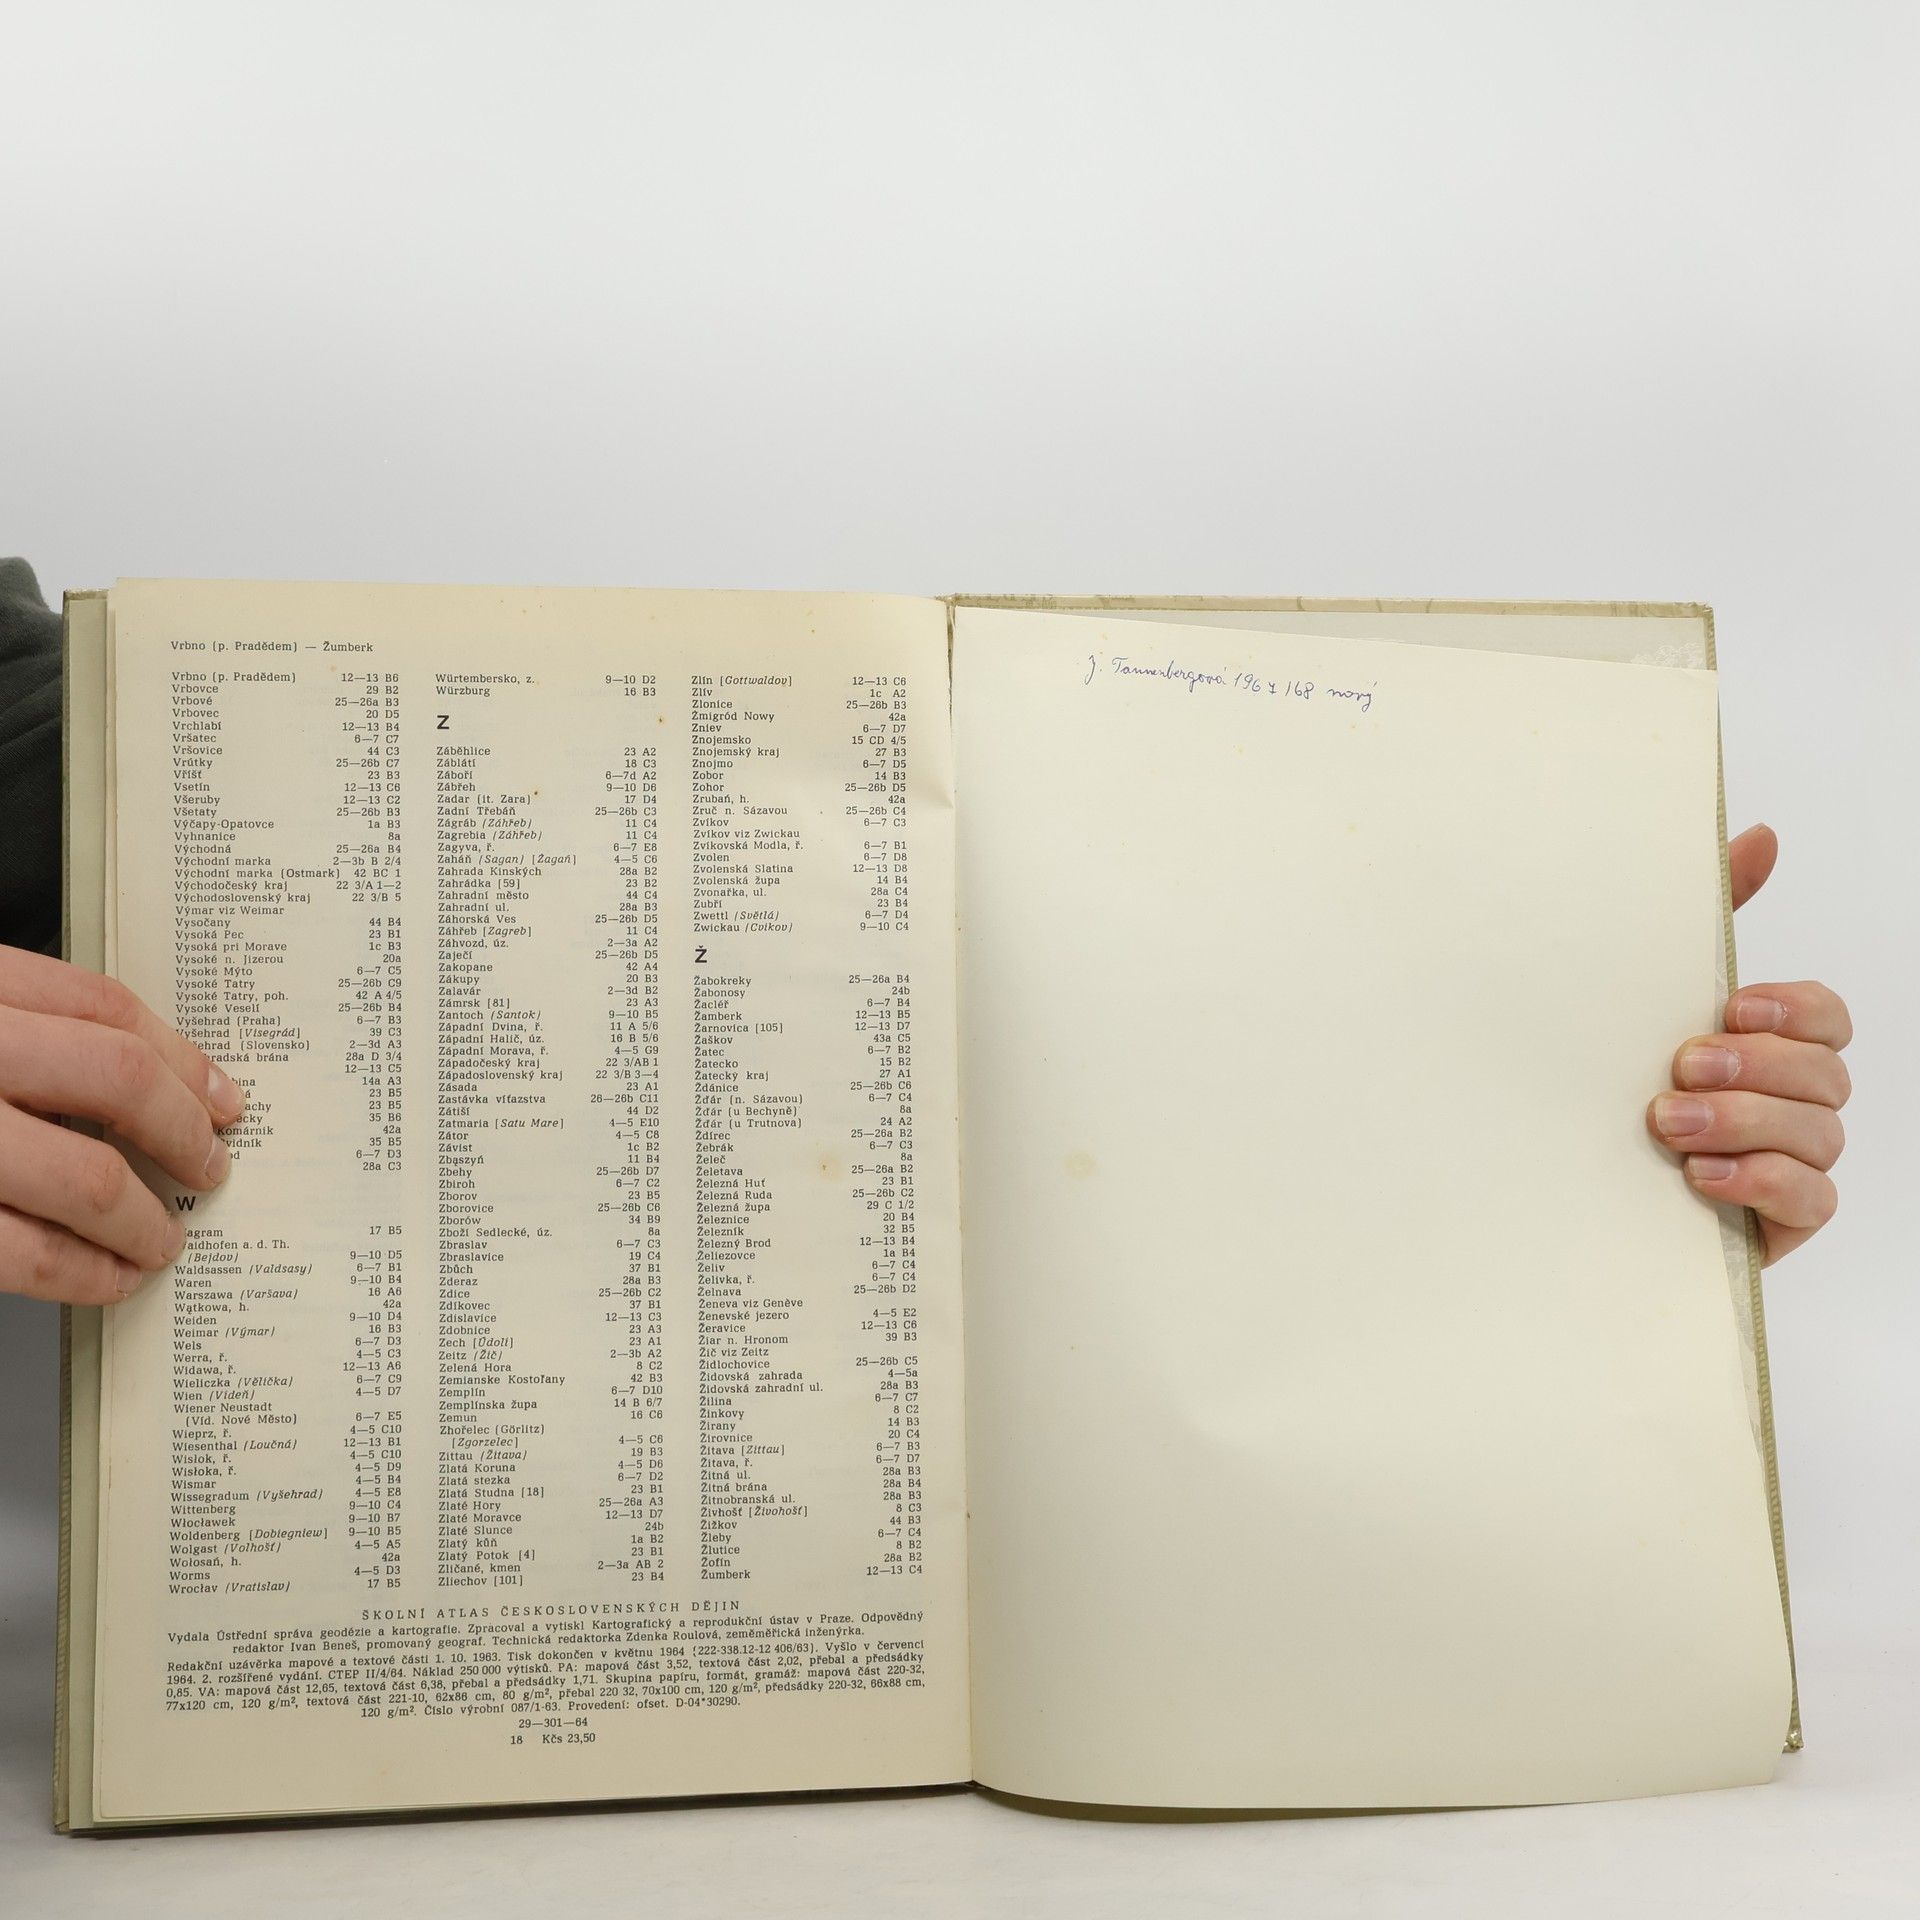 Vrbno (p. Pradědem) — Žumberk
Vrbno (p. Pradědem) 12—13 B6
Vrbovce 29 B2
Vrbové 25—26a B3
Vrbovec 20 D5
Vrchlabí 12—13 B4
Vršatec 6—7 C7
Vršovice 44 C3
Vrútky 25—26b C7
Vříšť 23 B3
Vsetín 12—13 C6
Všeruby 12—13 C2
Všetaty 25—26b B3
Výčapy-Opatovce 1a B3
Vyhnanice 8a
Východná 25—26a B4
Východní marka 2—3b B 2/4
Východní marka (Ostmark) 42 BC 1
Východočeský kraj 22 3/A 1—2
Východoslovenský kraj 22 3/B 5
Výmar viz Weimar
Vysočany 44 B4
Vysoká Pec 23 B1
Vysoká pri Morave 1c B3
Vysoké n. Jizerou 20a
Vysoké Mýto 6—7 C5
Vysoké Tatry 25—26b C9
Vysoké Tatry, poh. 42 A 4/5
Vysoké Veselí 25—26b B4
Vyšehrad (Praha) 6—7 B3
Vyšehrad [Visegrád] 39 C3
ehrad (Slovensko) 2—3d A3
hradská brána 28a D 3/4
12—13 C5
bina 14a A3
á 23 B5
achy 23 B5
ečky 35 B6
Komárnik 42a
vidník 35 B5
od 6—7 D3
28a C3
W
agram 17 B5
aidhofen a. d. Th.
(Bejdov) 9—10 D5
Waldsassen (Valdsasy) 6—7 B1
Waren 9—10 B4
Warszawa (Varšava) 16 A6
Wątkowa, h. 42a
Weiden 9—10 D4
Weimar (Výmar) 16 B3
Wels 6—7 D3
Werra, ř. 4—5 C3
Widawa, ř. 12—13 A6
Wieliczka (Vělička) 6—7 C9
Wien (Vídeň) 4—5 D7
Wiener Neustadt
(Víd. Nové Město) 6—7 E5
Wieprz, ř. 4—5 C10
Wiesenthal (Loučná) 12—13 B1
Wisłok, ř. 4—5 C10
Wisłoka, ř. 4—5 D9
Wismar 4—5 B4
Wissegradum (Vyšehrad) 4—5 E8
Wittenberg 9—10 C4
Włocławek 9—10 B7
Woldenberg [Dobiegniew] 9—10 B5
Wolgast (Volhošť) 4—5 A5
Wołosań, h. 42a
Worms 4—5 D3
Wrocław (Vratislav) 17 B5
Würtembersko, z. 9—10 D2
Würzburg 16 B3
Z
Záběhlice 23 A2
Záblátí 18 C3
Záboří 6—7d A2
Zábřeh 9—10 D6
Zadar (it. Zara) 17 D4
Zadní Třebáň 25—26b C3
Zágráb (Záhřeb) 11 C4
Zagrebia (Záhřeb) 11 C4
Zagyva, ř. 6—7 E8
Zaháň (Sagan) [Žagań] 4—5 C6
Zahrada Kinských 28a B2
Zahrádka [59] 23 B2
Zahradní město 44 C4
Zahradní ul. 28a B3
Záhorská Ves 25—26b D5
Záhřeb [Zagreb] 11 C4
Záhvozd, úz. 2—3a A2
Zaječí 25—26b D5
Zakopane 42 A4
Zákupy 20 B3
Zalavár 2—3d B2
Zámrsk [81] 23 A3
Zantoch (Santok) 9—10 B5
Západní Dvina, ř. 11 A 5/6
Západní Halič, úz. 16 B 5/6
Západní Morava, ř. 4—5 G9
Západočeský kraj 22 3/AB 1
Západoslovenský kraj 22 3/B 3—4
Zásada 23 A1
Zastávka víťazstva 26—26b C11
Zátiší 44 D2
Zatmaria [Satu Mare] 4—5 E10
Zátor 4—5 C8
Závist 1c B2
Zbąszyń 11 B4
Zbehy 25—26b D7
Zbiroh 6—7 C2
Zborov 23 B5
Zborovice 25—26b C6
Zborów 34 B9
Zboží Sedlecké, úz. 8a
Zbraslav 6—7 C3
Zbraslavice 19 C4
Zbůch 37 B1
Zderaz 28a B3
Zdice 25—26b C2
Zdíkovec 37 B1
Zdislavice 12—13 C3
Zdobnice 23 A3
Zech [Údolí] 23 A1
Zeitz (Žič) 2—3b A2
Zelená Hora 8 C2
Zemianske Kostoľany 42 B3
Zemplín 6—7 D10
Zemplínska župa 14 B 6/7
Zemun 16 C6
Zhořelec (Görlitz)
[Zgorzelec] 4—5 C6
Zittau (Žitava) 19 B3
Zlatá Koruna 4—5 D6
Zlatá stezka 6—7 D2
Zlatá Studna [18] 23 B1
Zlaté Hory 25—26a A3
Zlaté Moravce 12—13 D7
Zlaté Slunce 24b
Zlatý kůň 1a B2
Zlatý Potok [4] 23 B1
Zličané, kmen 2—3a AB 2
Zliechov [101] 23 B4
Zlín [Gottwaldov] 12—13 C6
Zlív 1c A2
Zlonice 25—26b B3
Żmigród Nowy 42a
Zniev 6—7 D7
Znojemsko 15 CD 4/5
Znojemský kraj 27 B3
Znojmo 6—7 D5
Zobor 14 B3
Zohor 25—26b D5
Zrubań, h. 42a
Zruč n. Sázavou 25—26b C4
Zvíkov 6—7 C3
Zvíkov viz Zwickau
Zvíkovská Modla, ř. 6—7 B1
Zvolen 6—7 D8
Zvolenská Slatina 12—13 D8
Zvolenská župa 14 B4
Zvonařka, ul. 28a C4
Zubří 23 B4
Zwettl (Světlá) 6—7 D4
Zwickau (Cvikov) 9—10 C4
Ž
Žabokreky 25—26a B4
Žabonosy 24b
Žacléř 6—7 B4
Žamberk 12—13 B5
Žarnovica [105] 12—13 D7
Žaškov 43a C5
Žatec 6—7 B2
Žatecko 15 B2
Žatecký kraj 27 A1
Ždánice 25—26b C6
Žďár (n. Sázavou) 6—7 C4
Žďár (u Bechyně) 8a
Žďár (u Trutnova) 24 A2
Ždírec 25—26a B2
Žebrák 6—7 C3
Želeč 8a
Želetava 25—26a B2
Železná Huť 23 B1
Železná Ruda 25—26b C2
Železná župa 29 C 1/2
Železnice 20 B4
Železník 32 B5
Železný Brod 12—13 B4
Želiezovce 1a B4
Želiv 6—7 C4
Želivka, ř. 6—7 C4
Želnava 25—26b D2
Ženeva viz Genève
Ženevské jezero 4—5 E2
Žeravice 12—13 C6
Žiar n. Hronom 39 B3
Žič viz Zeitz
Židlochovice 25—26b C5
Židovská zahrada 4—5a
Židovská zahradní ul. 28a B3
Žilina 6—7 C7
Žinkovy 8 C2
Žirany 14 B3
Žirovnice 20 C4
Žitava [Zittau] 6—7 B3
Žitava, ř. 6—7 D7
Žitná ul. 28a B3
Žitná brána 28a B4
Žitnobranská ul. 28a B3
Živhošť [Živohošť] 8 C3
Žižkov 44 B3
Žleby 6—7 C4
Žlutice 8 B2
Žofín 28a B2
Žumberk 12—13 C4
ŠKOLNÍ ATLAS ČESKOSLOVENSKÝCH DĚJIN
Vydala Ústřední správa geodézie a kartografie. Zpracoval a vytiskl Kartografický a reprodukční ústav v Praze. Odpovědný
redaktor Ivan Beneš, promovaný geograf. Technická redaktorka Zdenka Roulová, zeměměřická inženýrka.
Redakční uzávěrka mapové a textové části 1. 10. 1963. Tisk dokončen v květnu 1964 (222-338.12-12 406/63). Vyšlo v červenci
1964. 2. rozšířené vydání. CTEP II/4/64. Náklad 250 000 výtisků. PA: mapová část 3,52, textová část 2,02, přebal a předsádky
0,85. VA: mapová část 12,65, textová část 6,38, přebal a předsádky 1,71. Skupina papíru, formát, gramáž: mapová část 220-32,
77x120 cm, 120 g/m², textová část 221-10, 62x86 cm, 80 g/m², přebal 220 32, 70x100 cm, 120 g/m², předsádky 220-32, 66x88 cm,
120 g/m². Číslo výrobní 087/1-63. Provedení: ofset. D-04*30290.
29—301—64
18 Kčs 23,50
J. Tannenbergová 1967/68 nový